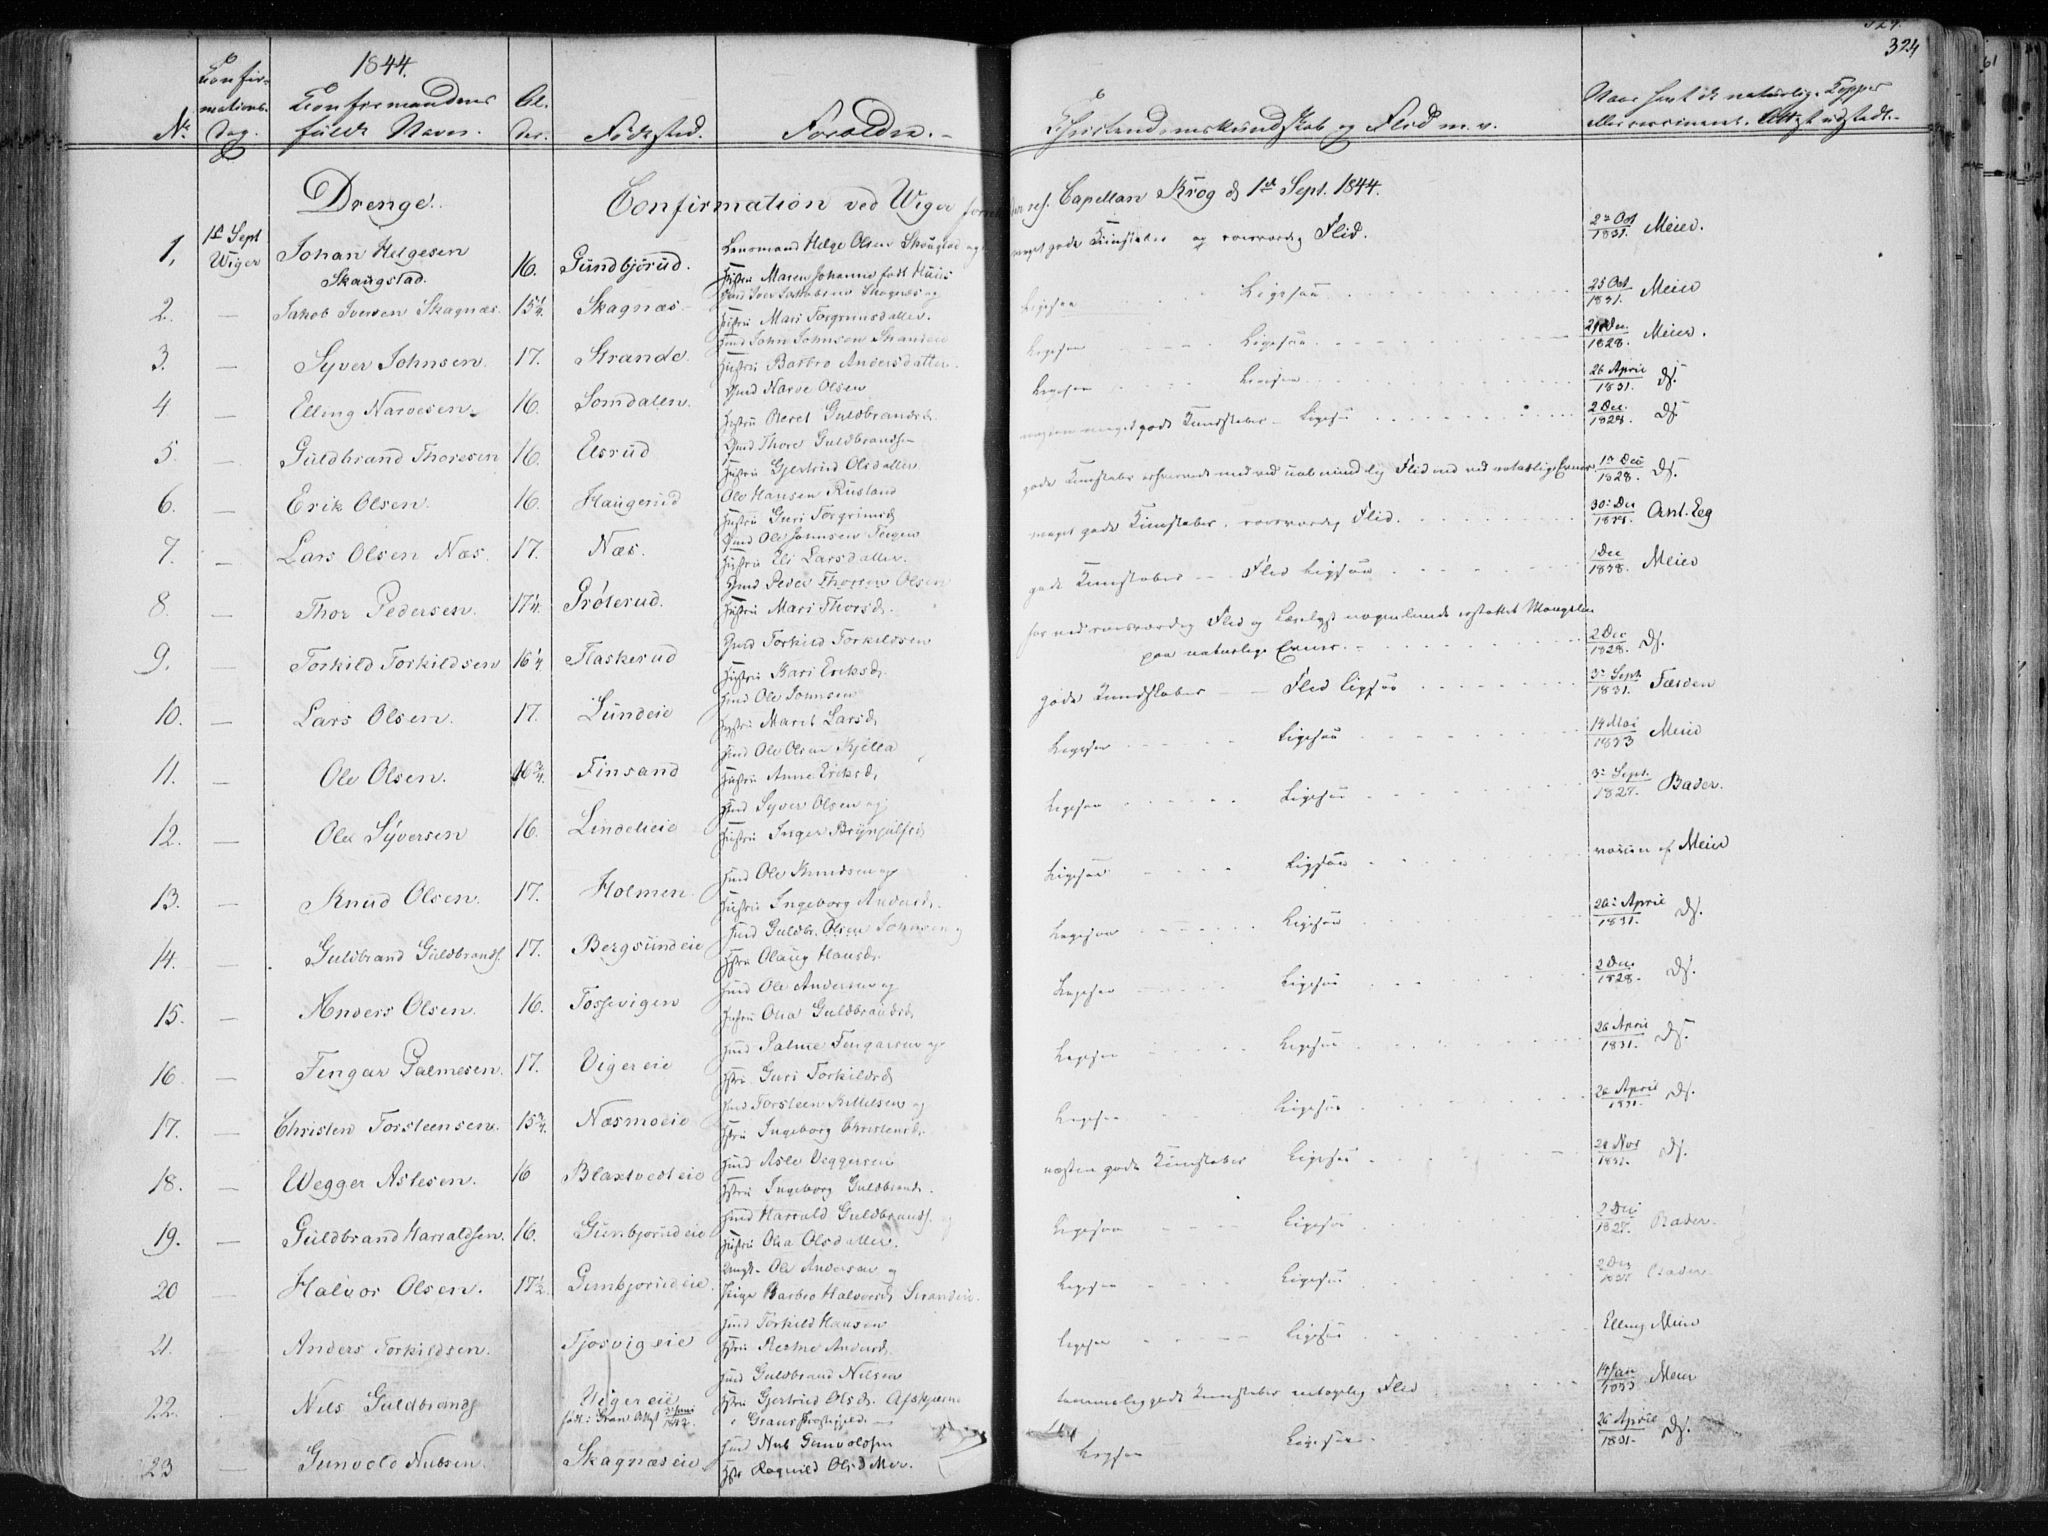 324
1844.
No Confirmations Dag. Confirmandens fulde Navn. Alder. Fødested. Forældre. Christendomskundskab og Flid m. v. Naar havt de naturlige Kopper eller vaccineret. Attest udstedt.
Drenge. Confirmation ved Wiger res. Capellan Krog d 1st Sept. 1844.
1, 1st Sept Wiger Johan Helgesen Skaugstad. 16. Gundbjørud. Lensmand Helge Olsen Skaugstad og Hustru Maren Johanne født meget gode Kundskaber og roesværdig Flid. 2n Oct 1831. Meier.
2. — Jakob Iversen Skagnæs. 15¼. Skagnæs. Iver Jakobsen Skagnæs og Hustru Mari Torgrimsdatter. Ligesaa Ligesaa 25 Oct 1831. Meier
3. — Syver Johnsen. 17. Strande. John Johnsen Strande Hustru Barbro Andersdatter. Ligesaa Ligesaa. Dec. 1828. Meier.
4. — Elling Narvesen. 16. Somdalen. Narve Olsen Hustru Beret Guldbrandsd. Ligesaa Ligesaa 26 April 1831. Ds.
5. — Guldbrand Thoresen 16. Elsrud Thore Guldbrandsen Hustru Gjertrud Olsdatter. meget gode Kundskaber — Ligesaa 2 Dec. 1828. Ds.
6. — Erik Olsen. 16 Haugerud Ole Hansen Rusland Hustru Guri Torgrimsd. gode Kundskaber Flid ved naturlige Evner. 1n Dec 1828. Ds.
7. — Lars Olsen Næs. 17. Næs. Ole Johnsen Hustru Eli Larsdatter. meget gode Kundskaber. roesværdig Flid. 30 Dec Ant. Eeg
8. — Thor Pedersen. 17¼. Grøterud. Peder Thorsen Olsen Hustru Mari Thorsd. gode Kundskaber — Flid ligesaa 1 Dec 1828. Meier
9. — Torkild Torkildsen 16¼ Flaskerud Torkild Torkildsen Hustru Bari Eriksd. har ved roesværdig Flid og Læselyst nogenlunde erstattet Mangelen paa naturlige Evner. 2 Dec 1828. Ds.
10. — Lars Olsen. 17. Lundeie Ole Johnsen Hustru Marit Larsd. gode Kundskaber — Flid ligesaa 3 Sept 1831. Færden
11. — Ole Olsen. 16¾. Finsand Ole Olsen Kjilla Hustru Anne Eriksd. Ligesaa Ligesaa 14 Mai 1833 Meier
12. — Ole Syversen 16. Lindelieie Syver Olsen og Hustru Inger Brynjulfsd. Ligesaa Ligesaa 3 Sept. 1827. Bader.
13. — Knud Olsen. 17. Holmen. Ole Knudsen og Hustru Ingeborg Andersd. Ligesaa Ligesaa af Meier
14. — Guldbrand Guldbrands. 17. Bergsundeie Guldbr. Olsen Johnsen og Hustru Olaug Hansd. Ligesaa Ligesaa 26 April 1831. Ds.
15. — Anders Olsen. 16. Tossevigen Ole Andersen og Hustru Olia Guldbrandsd. Ligesaa Ligesaa 2 Dec. 1828. Ds.
16. — Fingar Palmesen. 17. Vigereie Palme Fingarsen og Hustru Guri Torkildsd. Ligesaa Ligesaa 26 April 1831. Ds.
17. — Christen Torsteensen. 15¾. Næsmoeie Torsteen Kittelsen og Hustru Ingeborg Christensd. Ligesaa Ligesaa 26 April 1831. Ds.
18. — Wegger Aslesen. 16 Blaxtvedteie Asle Veggersen Hustru Ingeborg Guldbrandsd. næsten gode Kundskaber Ligesaa 28 Nov 1831. Ds.
19. — Guldbrand Harraldsen. 16. Gunbjørudeie Harrald Guldbrands. Hustru Olia Olsdatter. Ligesaa Ligesaa 2 Dec 1828. Bader.
20 — Halvor Olsen. 17½. Gunbjørudeie. Ole Andersen og Pige Barbro Halvorsd. Strandeie. Ligesaa Ligesaa 2 Dec Bader.
21. Anders Torkildsen. Tjosvigeie Torkild Hansen Hustru Andersd. Ligesaa Ligesaa Elling Meier
22. Nils Guldbrands. Vigereie født i Gran Attest Juni 1842. Guldbrand Nilsen Hustru Gjertrud Olsd. i Grans Præstegjeld. — temmelig gode Kundskaber Flid 14 Jan 1833 Meier
23 — Gunvold Nubsen. Skagnæseie Nub Gunvoldsen Hustru Ragnild Olsd. Ligesaa Ligesaa 26 April 1831. Ds.